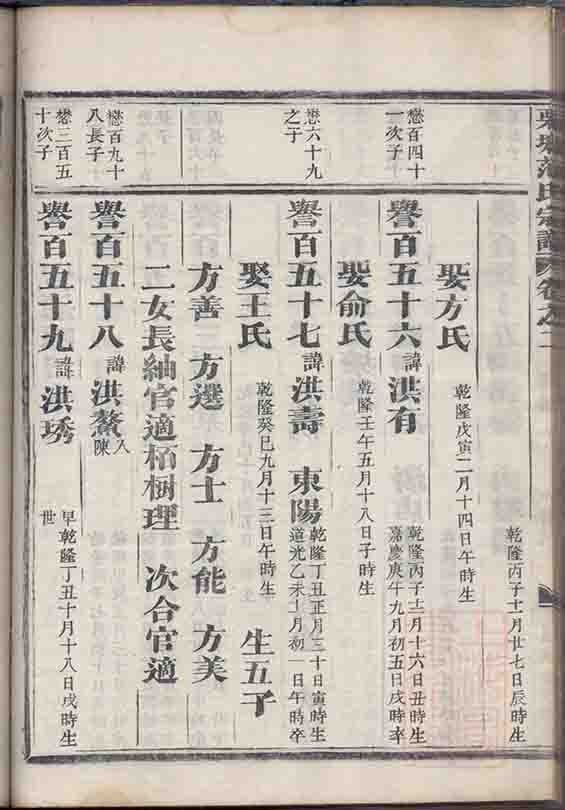 東場范氏宗譜 卷之二
乾隆丙子十一月廿七日辰時生
娶方氏
乾隆戊寅二月十四日午時生
懋百四十
一次子
譽百五十六
諱
洪有
乾隆丙子十二月十六日丑時生
嘉慶庚午九月初五日戌時卒
娶俞氏
乾隆壬午五月十八日子時生
懋六十九
之子
譽百五十七
諱
洪壽 東陽
乾隆丁丑正月三十日寅時生
道光乙未十月初一日午時卒
娶王氏
乾隆癸巳九月十三日午時生
生五子
方善 方選 方士 方能 方美
二女長紬官適栢樹理 次合官適
懋百九十
八長子
譽百五十八
諱
洪鰲
入
陳
懋三百五
十次子
譽百五十九
諱
洪琇
早乾隆丁丑十月十八日戌時生
世